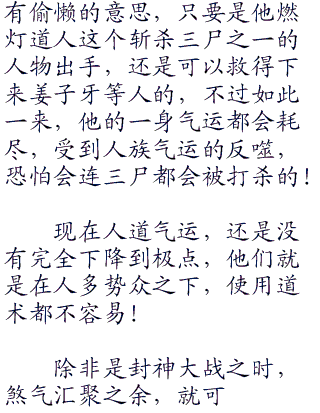 有偷懒的意思，只要是他燃
灯道人这个斩杀三尸之一的
人物出手，还是可以救得下
来姜子牙等人的，不过如此
一来，他的一身气运都会耗
尽，受到人族气运的反噬，
恐怕会连三尸都会被打杀的！
现在人道气运，还是没
有完全下降到极点，他们就
是在人多势众之下，使用道
术都不容易！
除非是封神大战之时，
煞气汇聚之余，就可